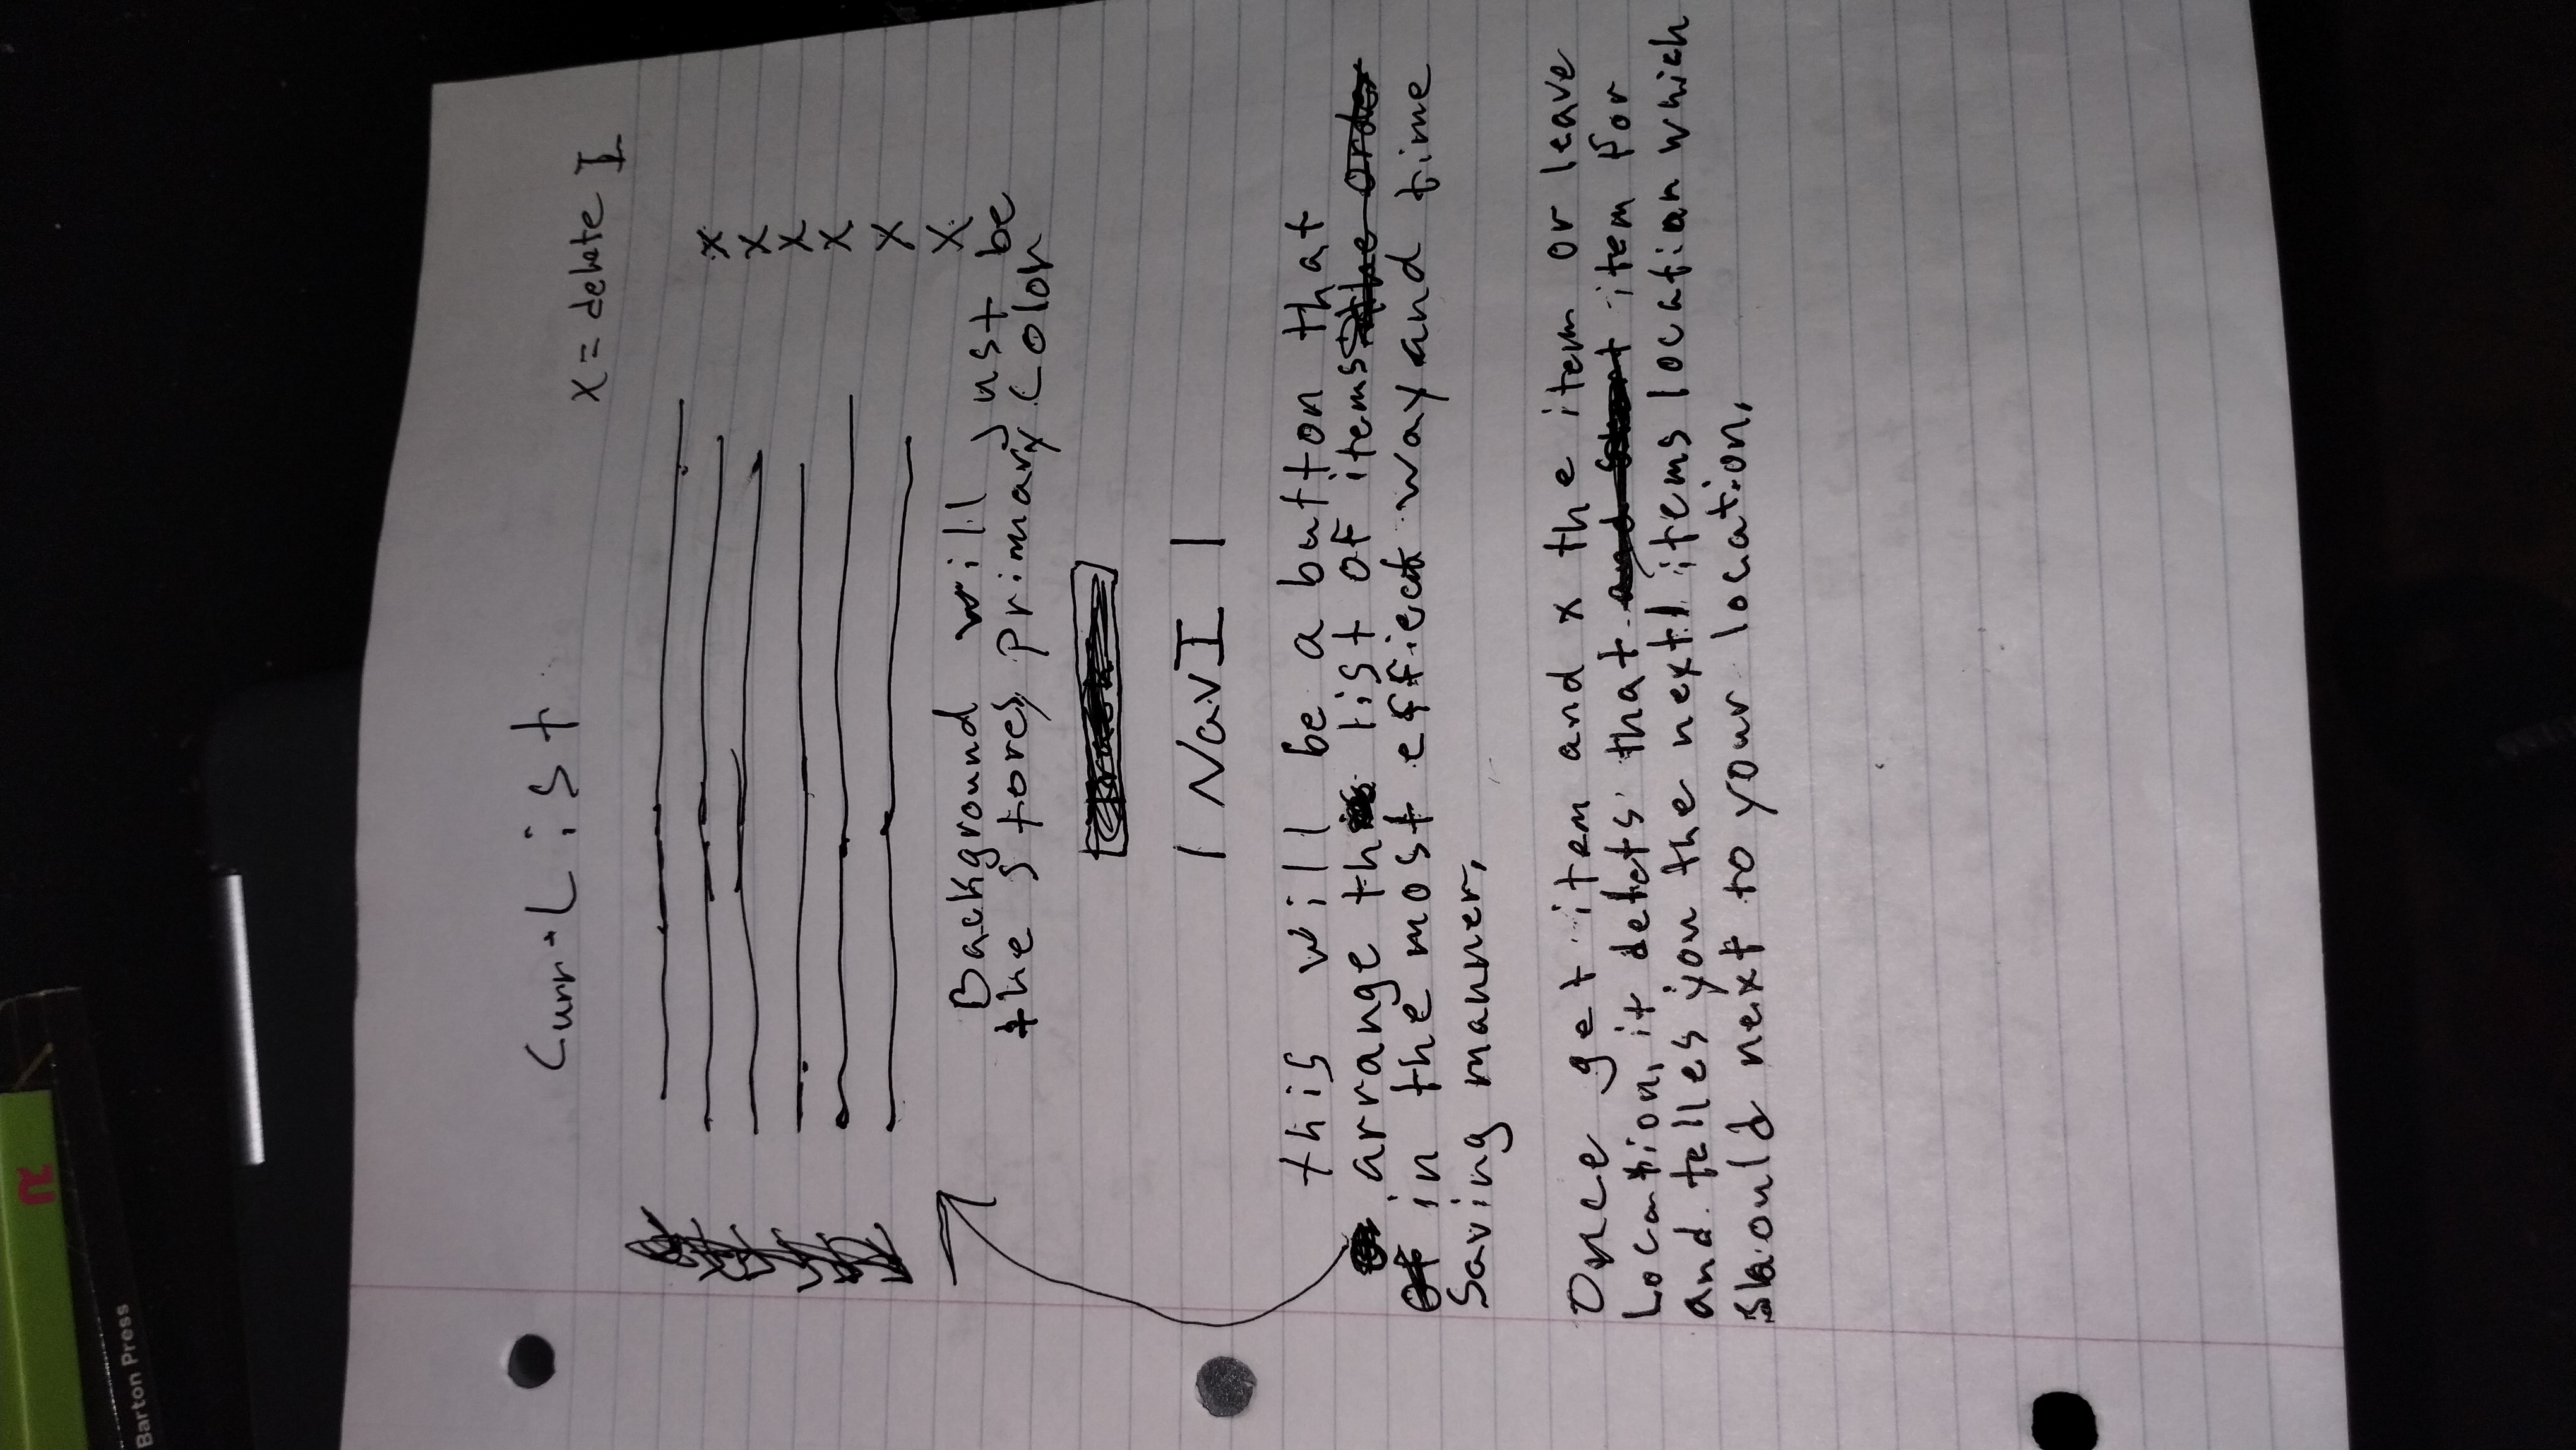 Barton Press
Curr List
X = delete I
X
X
X
X
X
X
Background will just be
the stores primary color
| NavI |
this will be a button that
arrange the list of items
in the most effiect way and time
Saving manner,
Once get item and x the item or leave
Location, it detets that item for
and telles you the next items location which
should next to your location,